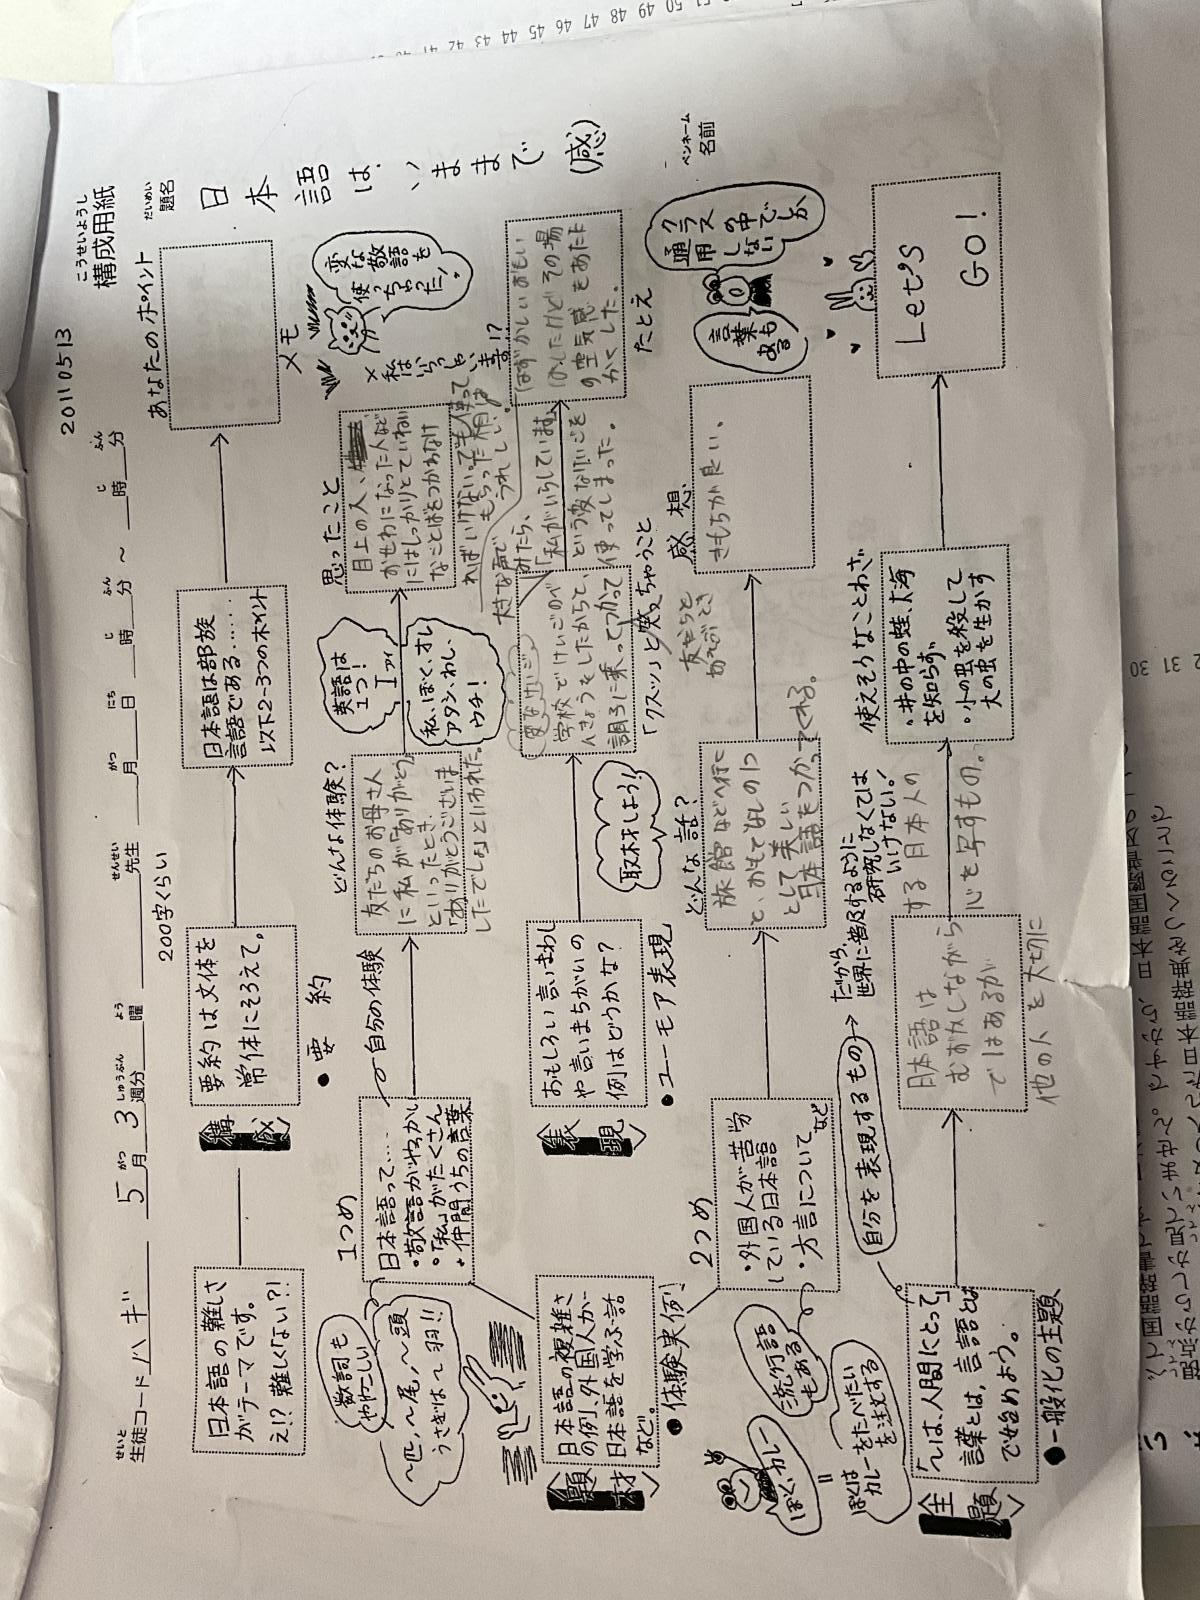 20110513
こうせいようし
構成用紙
せいと
生徒コード ハギ
5月 3週分 曜 先生 月 日 時 分 ～ 時 分
がつ しゅうぶん よう せんせい がつ にち じ ふん じ ふん
だいめい
題名
日本語は
いままで
(感)
ペンネーム
名前
日本語の難しさ
がテーマです。
え!? 難しくない?!
構成
要約は文体を
常体にそろえて。
200字くらい
日本語は部族
言語である……
以下2~3つのポイント
あなたのポイント
●要約
メモ
数詞も
ややこしい
～匹、～尾、～頭
うさぎは～羽!!
1つめ
日本語って…
・敬語がややこしい
・「私」がたくさん
・仲間うちの言葉
自分の体験
どんな体験?
友だちのお母さん
に私が「ありがとう」
といったとき、
「ありがとうございま
したでしょ」といわれた。
英語は
1つ!
I
アイ
私、ぼく、オレ
アタシ、わし、
ウチ!
思ったこと
目上の人、
おせわになった人など
にはしっかりとていねい
なことばをつかわなけ
ればいけない。
変な敬語を
使っちゃった!
×私は
いらっしゃいま
す!?
題材
日本語の複雑さ
の例、外国人が
日本語を学ぶ話
など。
●体験実例
表現
おもしろい言いまわし
や言いまちがいの
例はどうかな?
●ユーモア表現
取材しよう!
変なけいご
学校でけいごのべ
んきょうをしたからと、
調子に乗ってつかって
みたら、
「私がいらしています」
という変なけいごを
使ってしまった。
「クスッ」と笑えちゃうこと
はずかしいおもい
をしたけどその場
の空気感をあたた
かくした。
たとえ
2つめ
・外国人が苦労
している日本語
・方言について
など
流行語
もある
ぼく、カレー
=
ぼくは
カレーをたべたい
を注文する
どんな話?
旅館などへ行く
と、おもてなしの1つ
として美しい
日本語をつかってくれる。
友だちと
感想
きもちが良い、
クラスの中でしか
通用しない
言葉も
ある
主題
「～は、人間にとって」
言葉とは、言語とは
で始めよう。
●一般化の主題
自分を表現するもの
だから、
世界に普及するように
研究しなくては
いけない!
日本語は
むずかしながら
ではあるが
他の人を大切に
する日本人の
心を写すもの。
使えそうなことわざ
・井の中の蛙、大海
を知らず
・小の虫を殺して
大の虫を生かす
Let's
GO!